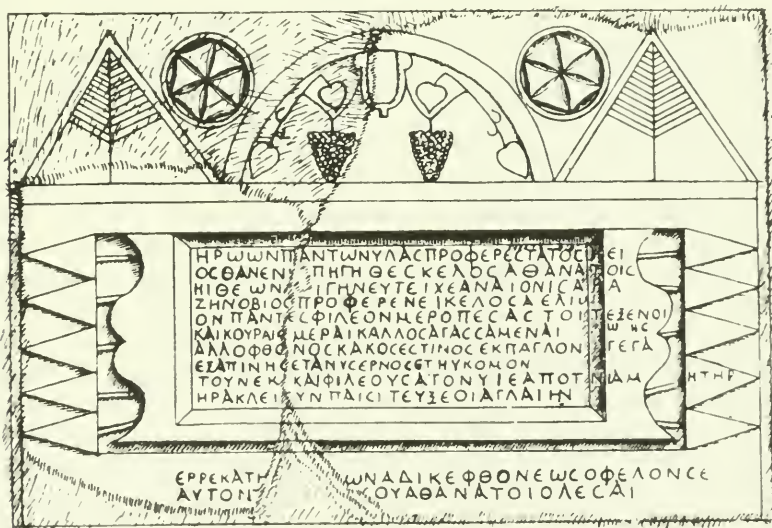 ΗΡΩΩΝΠΑΝΤΩΝΥΛΑΣΠΡΟΦΕΡΕΣΤΑΤΟΣ ΕΙ
ΟΣΘΑΝΕΝ ΠΗΓΗΘΕΣΚΕΛΟΣΑΘΑΝΑΤΟΙΣ
ΗΙΘΕΩΝ ΙΓΗΝΕΥΤΕΙΧΕΑΝΑΙΟΝΙΣ Α
ΖΗΝΟΒΙΟΣΠΡΟΦΕΡΕΝΕΙΚΕΛΟΣΑΕΛΙΩ
ΟΝΠΑΝΤΕΣΦΙΛΕΟΝΜΕΡΟΠΕΣΑΣΤΟΙΤΕΞΕΝΟΙ
ΚΑΙΚΟΥΡΑΙ ΜΕΡΑΙΚΑΛΛΟΣΑΓΑΣΣΑΜΕΝΑΙ
ΑΛΛΟΦΘΟΝΟΣΚΑΚΟΣΕΣΤΙΝΟΣΕΚΠΑΓΛΟΝ ΓΕΓΑΩΗΣ
ΕΞΑΠΙΝΗΣΕΤΑΝΥΣΕΡΝΟΣΕΤΗΥΚΟΜΟΝ
ΤΟΥΝΕΚ ΚΑΙΦΙΛΕΟΥΣΑΤΟΝΥΙΕΑΠΟΤΝΙΑΜΗΤΗΡ
ΗΡΑΚΛΕΙ ΥΝΠΑΙΣΙΤΕΥΞΕΟΙΑΓΛΑΙΗΝ
ΕΡΡΕΚΑΤΗ ΩΝΑΔΙΚΕΦΘΟΝΕΩΣΟΦΕΛΟΝΣΕ
ΑΥΤΟΝ ΟΥΑΘΑΝΑΤΟΙΟΛΕΣΑΙ